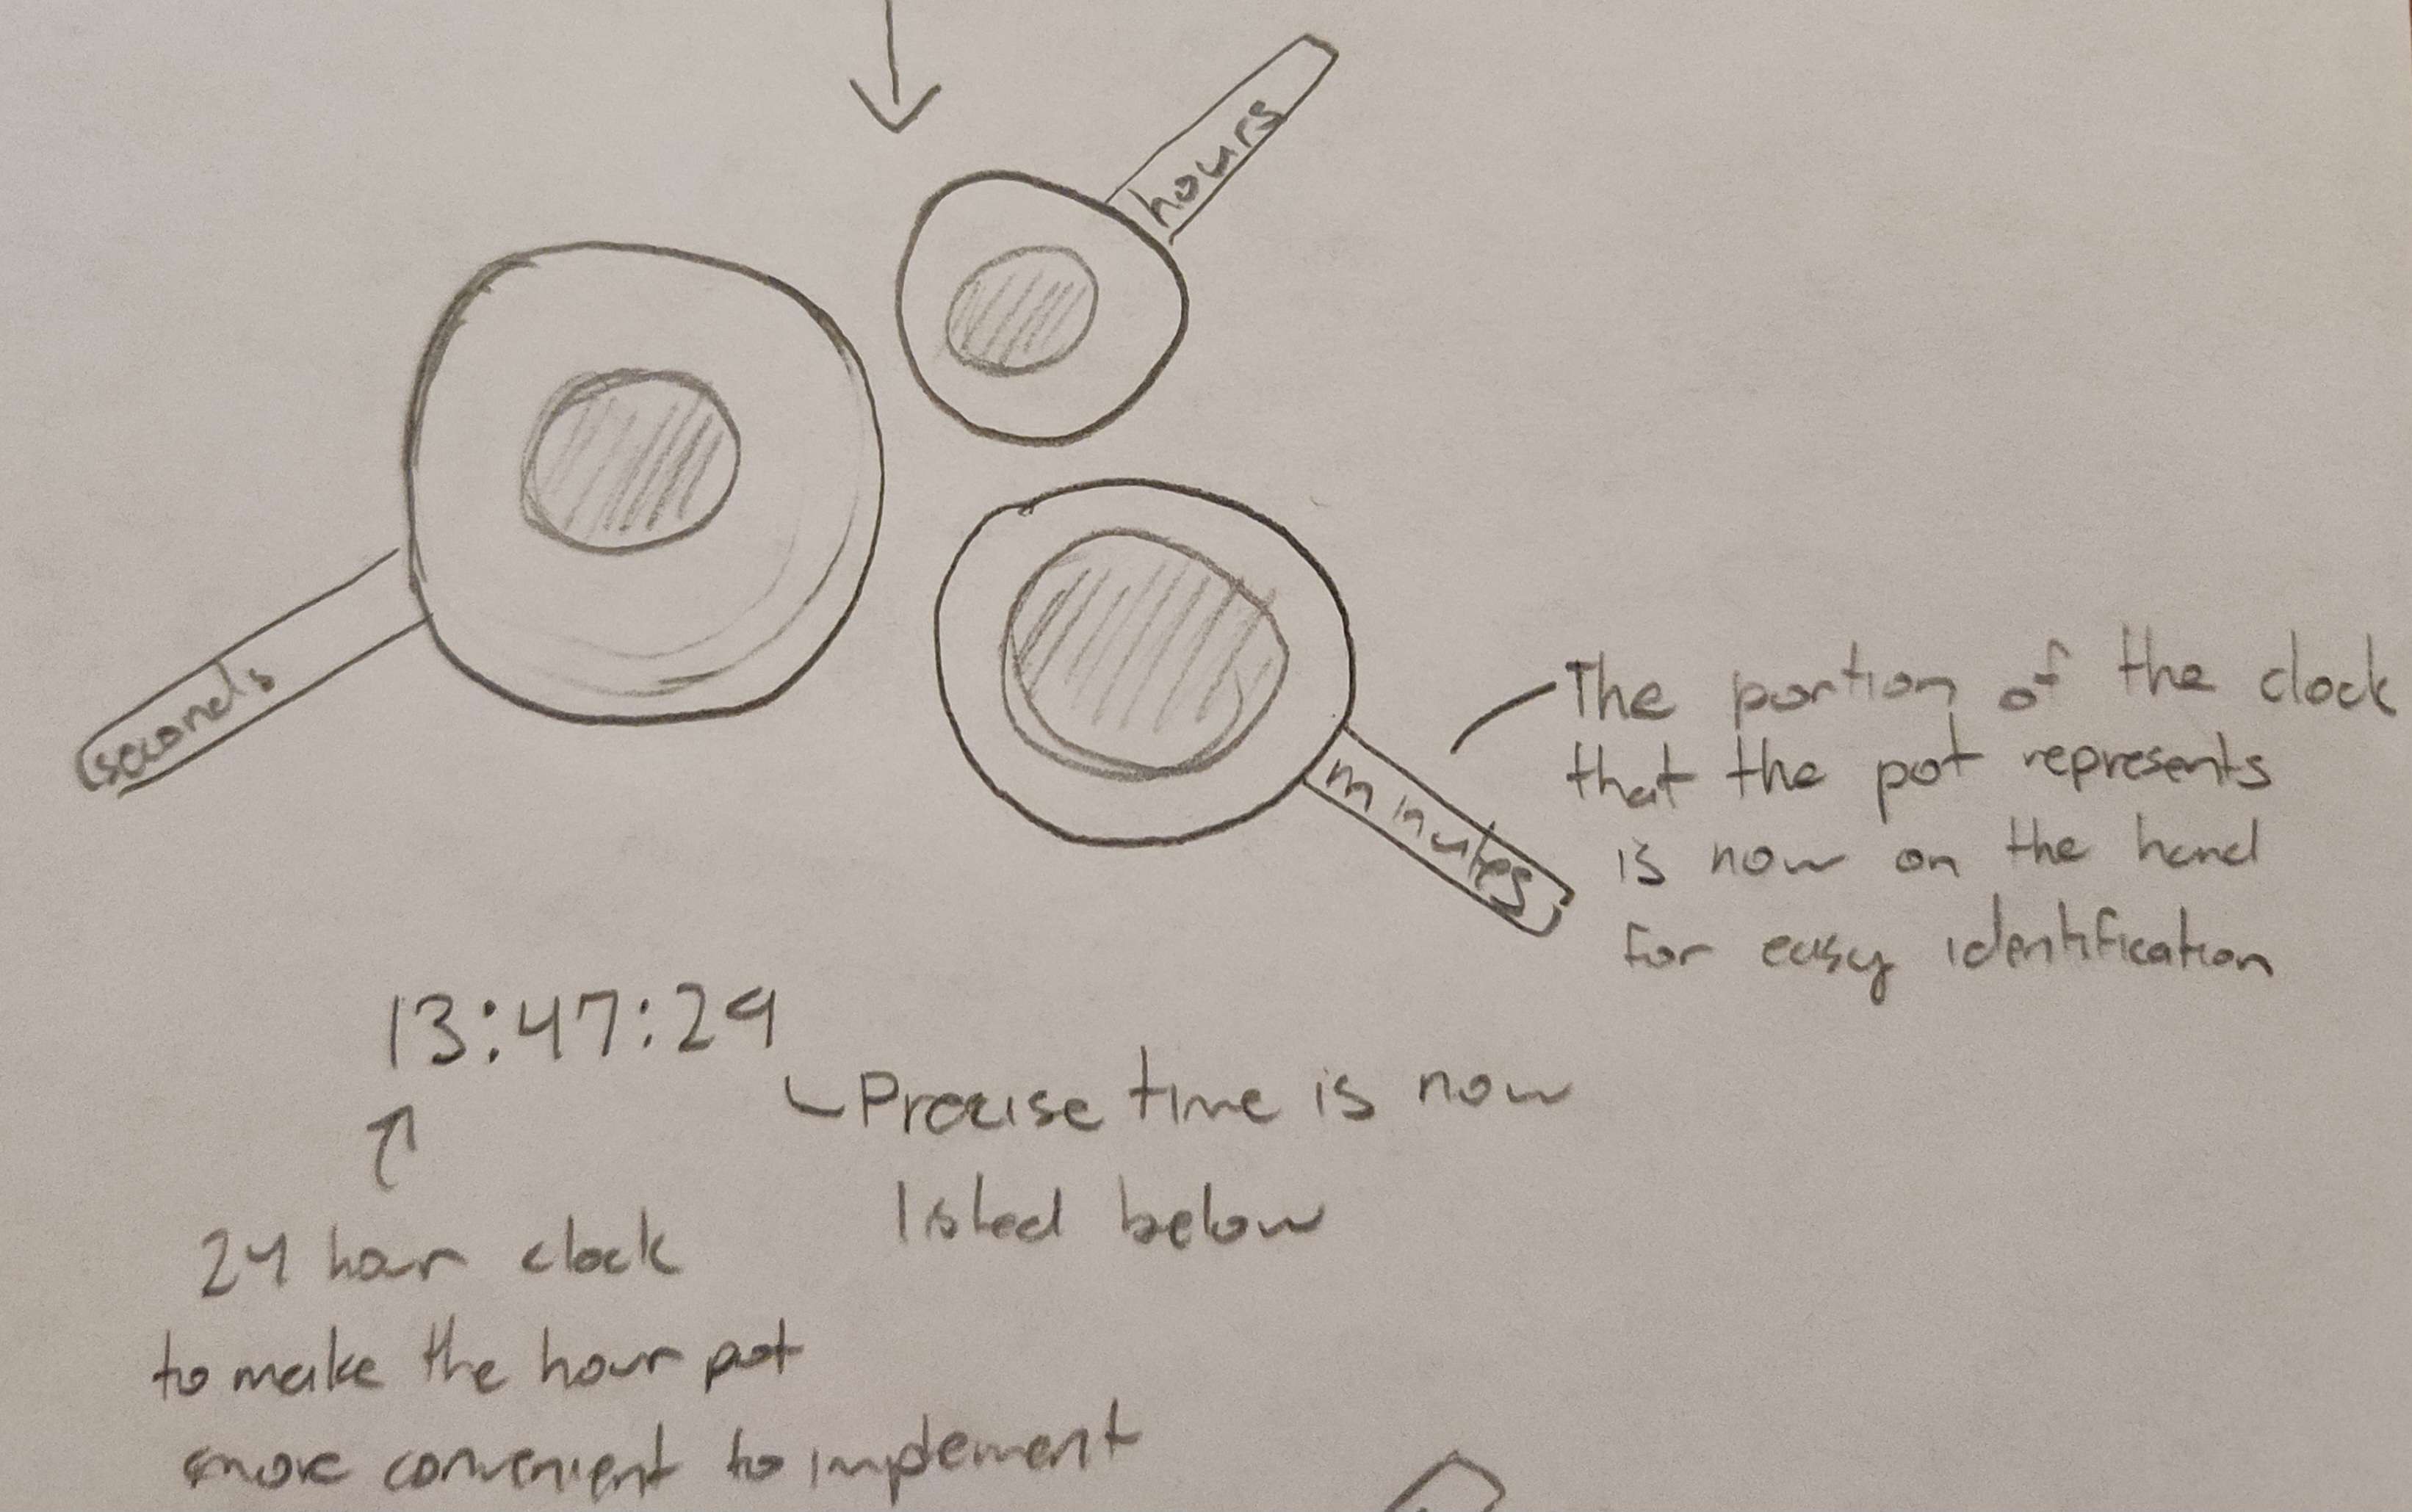 hours
seconds
minutes
The portion of the clock
that the pot represents
is now on the hand
for easy identification
13:47:29
Precise time is now
listed below
24 hour clock
to make the hour pot
more convenient to implement